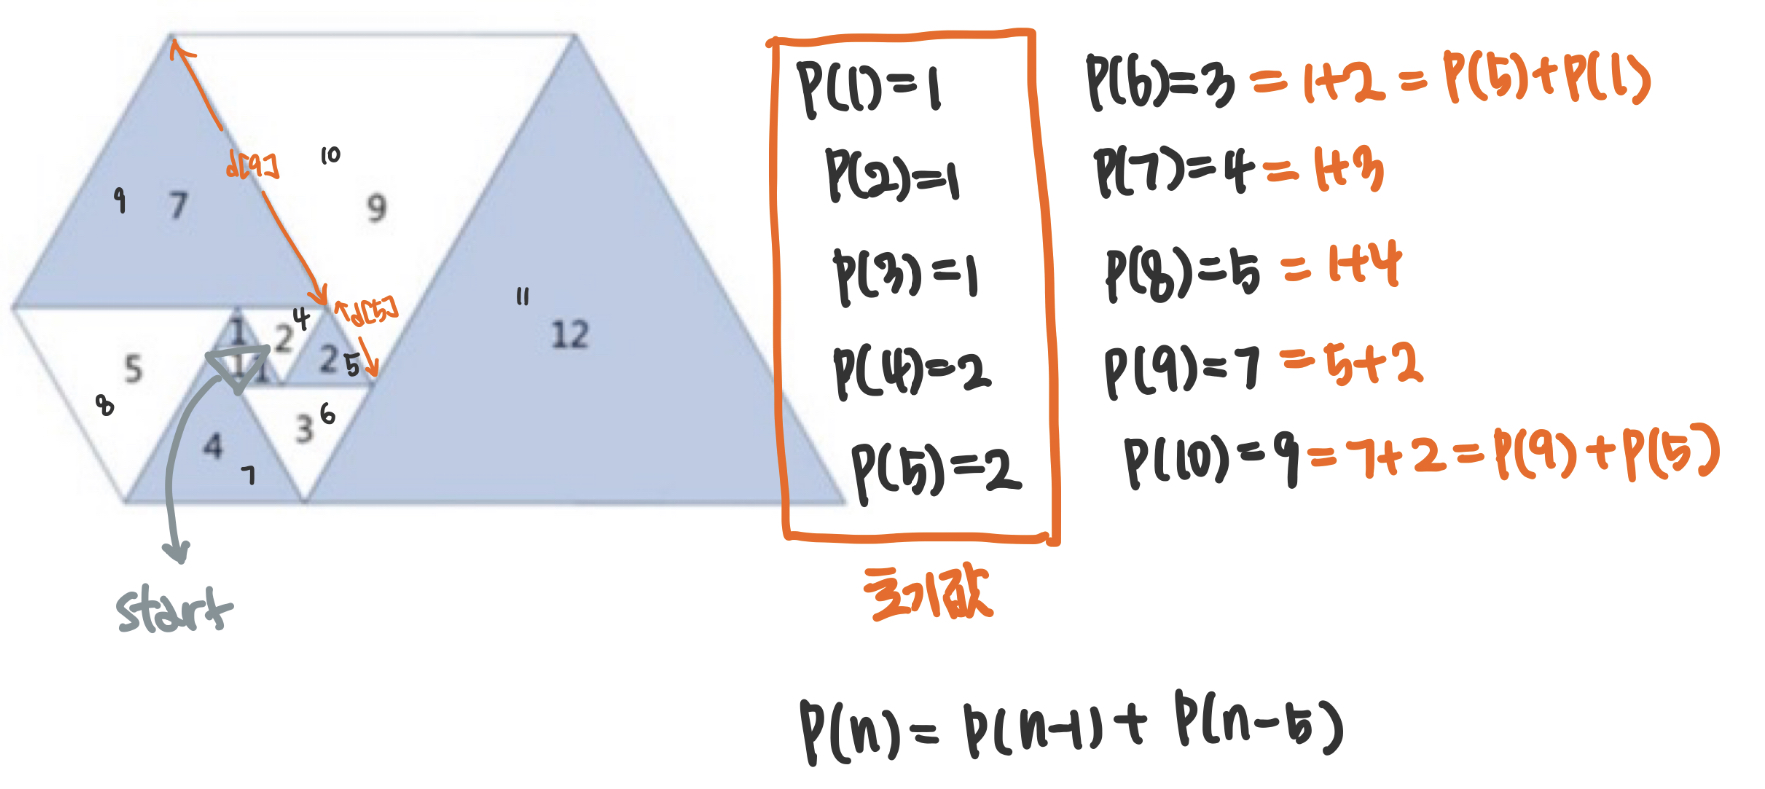 d[9]
10
9 7
9
d[5]
11
12
1 2 4
5
1 1
2 5
8
3 6
4
7
start
P(1)=1
P(2)=1
P(3)=1
P(4)=2
P(5)=2
초기값
P(6)=3 = 1+2 = P(5)+P(1)
P(7)=4 = 1+3
P(8)=5 = 1+4
P(9)=7 = 5+2
P(10)=9 = 7+2 = P(9)+P(5)
P(n)= P(n-1) + P(n-5)